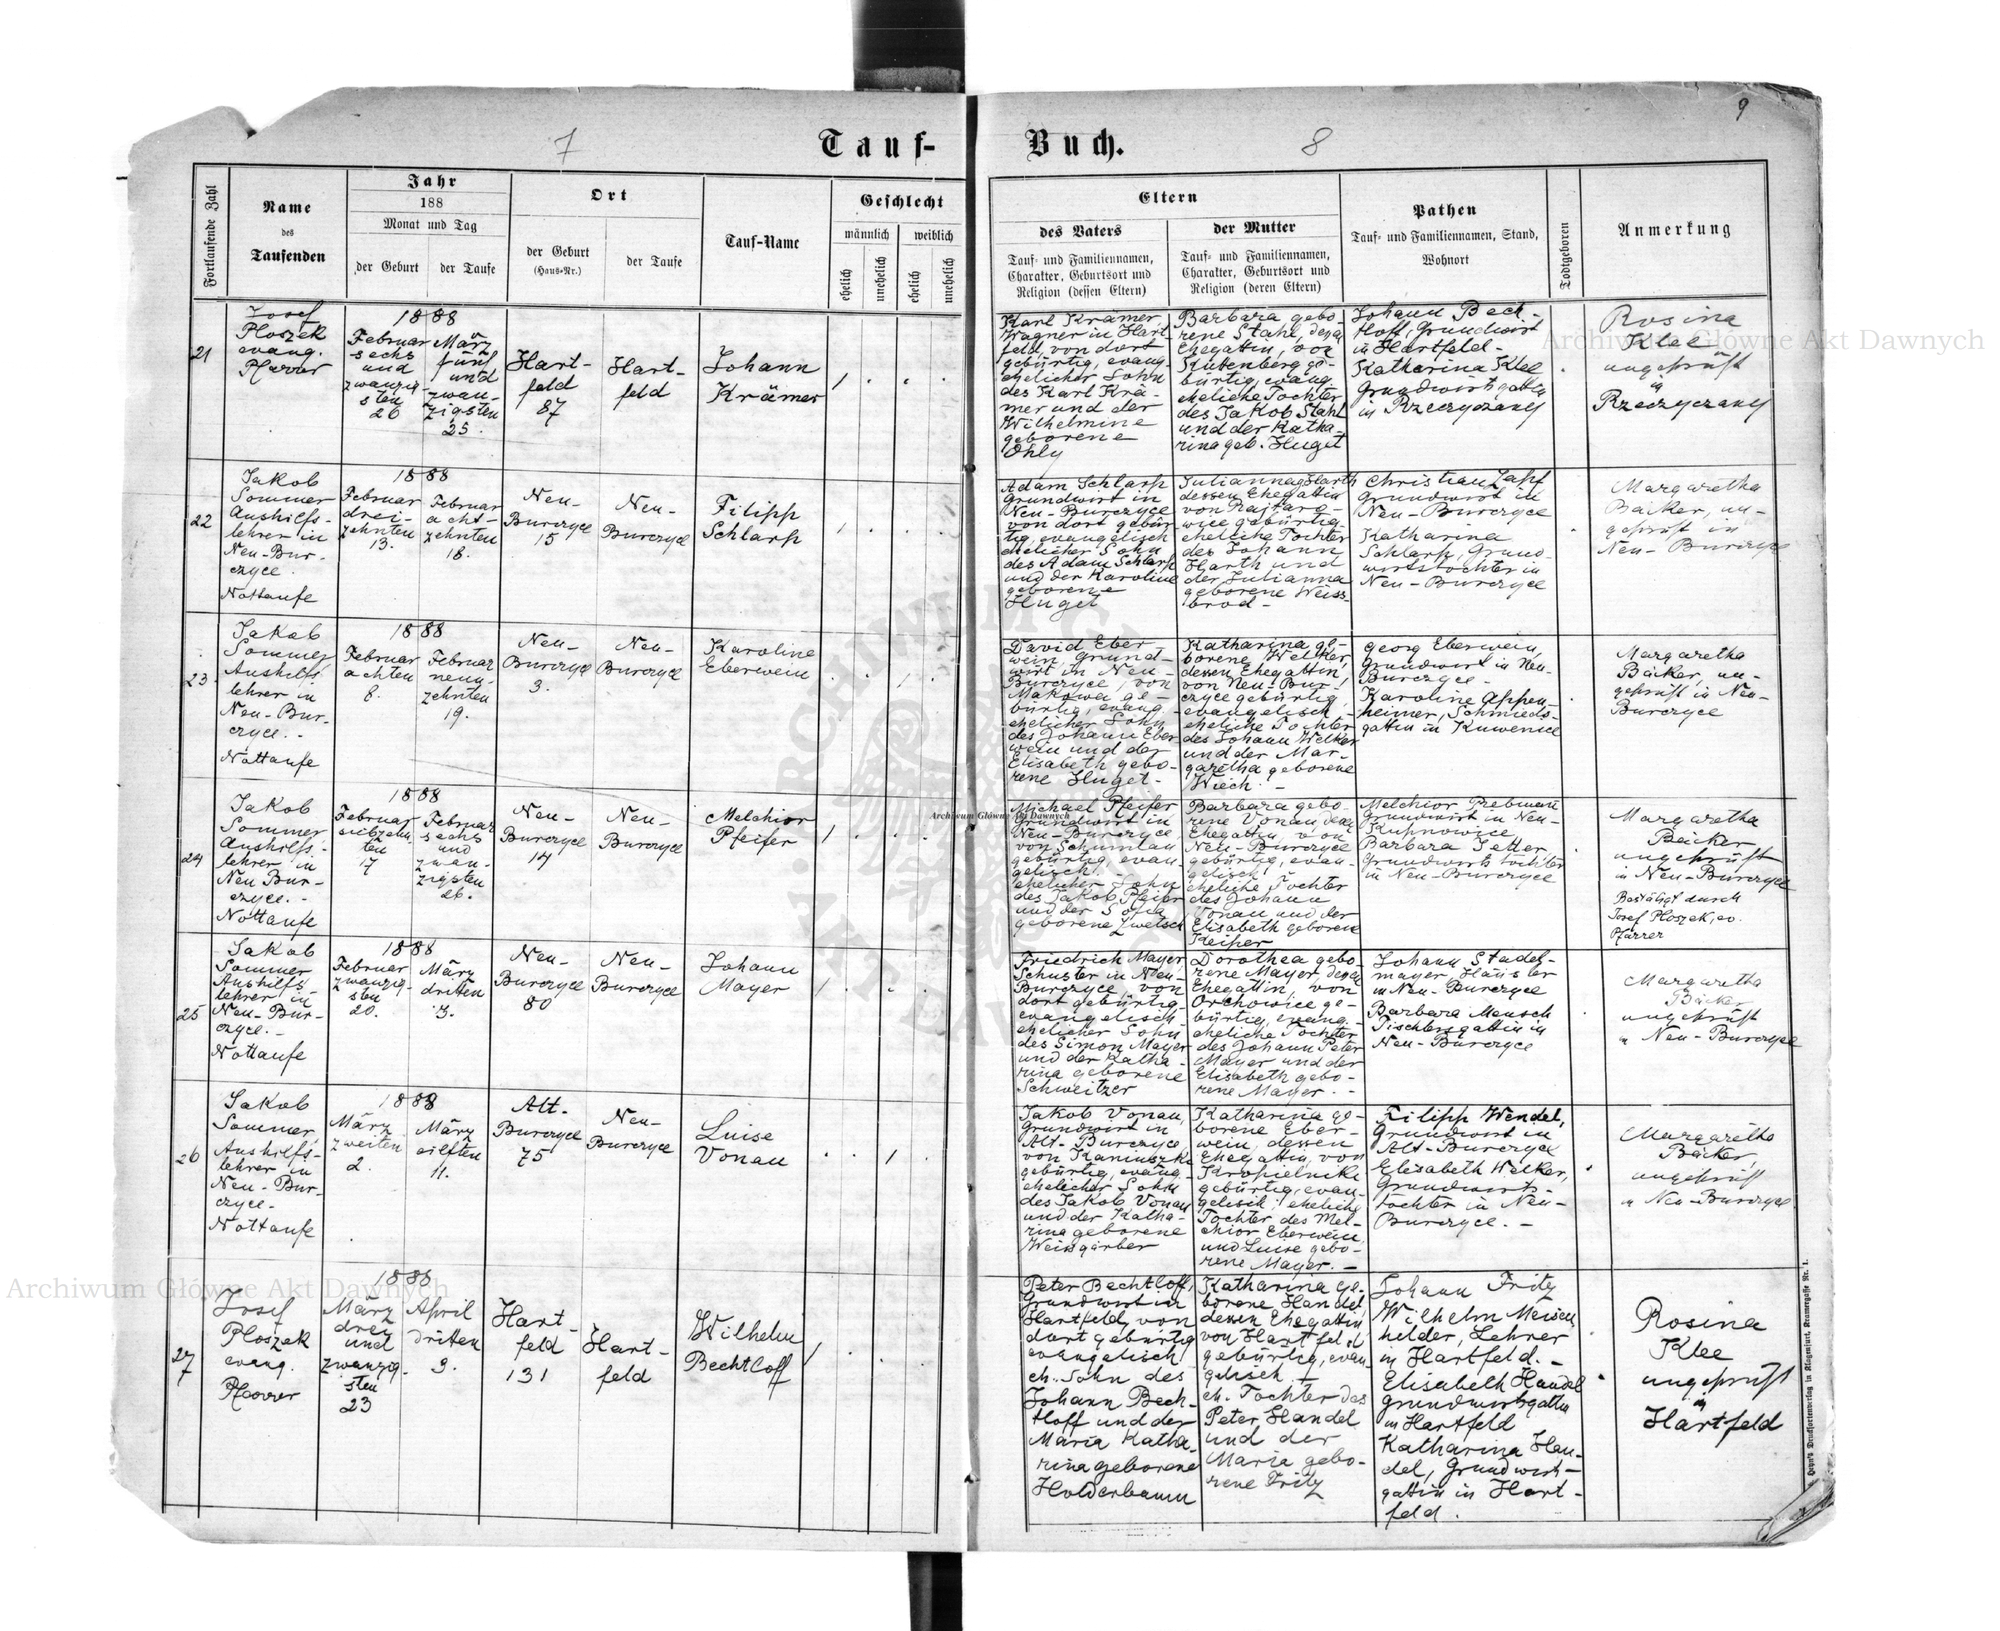 9
7
Tauf-
Buch.
8
Fortlaufende Zahl
Name
des
Taufenden
Jahr
188
Monat und Tag
der Geburt
der Taufe
Ort
der Geburt
(Haus-Nr.)
der Taufe
Tauf-Name
Geschlecht
männlich
weiblich
ehelich
unehelich
ehelich
unehelich
Eltern
des Vaters
Tauf- und Familiennamen,
Charakter, Geburtsort und
Religion (dessen Eltern)
der Mutter
Tauf- und Familiennamen,
Charakter, Geburtsort und
Religion (deren Eltern)
Pathen
Tauf- und Familiennamen, Stand,
Wohnort
Todtgeboren
Anmerkung
21
Josef
Ploszek
evang.
Pfarrer
1888
Februar
sechs
und
zwanzig-
sten
26
März
fünf
und
zwan-
zigsten
25.
Hart-
feld
87
Hart-
feld
Johann
Krämer
Karl Krämer
Wagner in Hart
feld, von dort
gebürtig, evang.
ehelicher Sohn
des Karl Krä-
mer und der
Wilhelmine
geborene
Ohly
Barbara gebo-
rene Stahl, dessen
Ehegattin, von
Kutenberg ge-
bürtig, evang.
eheliche Tochter
des Jakob Stahl
und der Katha-
rina geb. Huget
Johann Bech-
tloff, Grundwirt
in Hartfeld -
Katharina Klee
Grundwirtsgattin
in Rzeczyczany
Rosina
Klee
ungeprüft
in
Rzeczyczany
22
Jakob
Sommer
Aushilfs-
lehrer in
Neu-Bur-
czyce.
Nottaufe
1888
Februar
drei-
zehnten
13.
Februar
acht-
zehnten
18.
Neu-
Burczyce
15
Neu-
Burczyce
Filipp
Schlarp
Adam Schlarp
Grundwirt in
Neu-Burczyce
von dort gebür
tig, evangelisch
ehelicher Sohn
des Adam Schlarp
und der Karoline
geborene
Huget
Julianna Harth
dessen Ehegattin
von Rajtaro-
wice gebürtig
eheliche Tochter
des Johann
Harth und
der Julianna
geborene Weiss-
brod -
Christian Zapf
Grundwirt in
Neu-Burczyce
Katharina
Schlarp, Grund-
wirtstochter in
Neu-Burczyce
Margaretha
Bäcker, un-
geprüft in
Neu-Burczyce
23
Jakob
Sommer
Aushilfs-
lehrer in
Neu-Bur-
czyce.-
Nottaufe
1888
Februar
achten
8.
Februar
neun-
zehnten
19.
Neu-
Burczyce
3.
Neu-
Burczyce
Karoline
Eberwein
David Eber
wein, Grund-
wirt in Neu-
Burczyce, von
Makowa ge-
bürtig, evang.
ehelicher Sohn
des Johann Eber
wein und der
Elisabeth gebo-
rene Huget -
Katharina ge-
borene Welker,
dessen Ehegattin,
von Neu-Bur-
czyce gebürtig,
evangelisch -
eheliche Tochter
des Johann Welker
und der Mar-
garetha geborene
Wiech. -
Georg Eberwein,
Grundwirt in Neu-
Burczyce -
Karoline Appen-
heimer, Schmieds-
gattin in Kuwenice
Margaretha
Bäcker, un-
geprüft in Neu-
Burczyce
24
Jakob
Sommer
Aushilfs-
lehrer in
Neu Bur-
czyce.-
Nottaufe
1888
Februar
siebzehn-
ten
17
Februar
sechs
und
zwan-
zigsten
26.
Neu-
Burczyce
14
Neu-
Burczyce
Melchior
Pfeifer
Michael Pfeifer
Grundwirt in
Neu-Burczyce,
von Schumlau
gebürtig, evan-
gelisch. -
ehelicher Sohn
des Jakob Pfeifer
und der Sofia
geborene Zwetsch
Barbara gebo-
rene Vonau dessen
Ehegattin, von
Neu-Burczyce
gebürtig, evan-
gelisch
eheliche Tochter
des Johann
Vonau und der
Elisabeth geborene
Keiper
Melchior Trebman
Grundwirt in Neu-
Kupnowice,
Barbara Jetter
Grundwirts tochter
in Neu-Burczyce
Margaretha
Bäcker
ungeprüft
in Neu-Burczyce
Bestätigt durch
Josef Ploszek, ev.
Pfarrer
25
Jakob
Sommer
Aushilfs
lehrer in
Neu-Bur-
czyce.-
Nottaufe
1888
Februar
zwanzig-
sten
20.
März
dritten
3.
Neu-
Burczyce
80
Neu-
Burczyce
Johann
Mayer
Friedrich Mayer,
Schuster in Neu-
Burczyce von
dort gebürtig
evangelisch
ehelicher Sohn
des Simon Mayer
und der Katha-
rina geborene
Schweitzer
Dorothea gebo-
rene Mayer, dessen
Ehegattin, von
Orchowice ge-
bürtig, evang.
eheliche Tochter
des Johann Peter
Mayer und der
Elisabeth gebo-
rene Mayer. -
Johann Stadel-
mayer, Häusler
in Neu-Burczyce
Barbara Mensch
Tischlersgattin in
Neu-Burczyce
Margaretha
Bäcker
ungeprüft
in Neu-Burczyce
26
Jakob
Sommer,
Aushilfs-
lehrer in
Neu-Bur-
czyce-
Nottaufe
1888
März
zweiten
2.
März
eilften
11.
Alt-
Burczyce
75
Neu-
Burczyce
Luise
Vonau
Jakob Vonau,
Grundwirt in
Alt-Burczyce,
von Kaniuszki
gebürtig, evang.
ehelicher Sohn
des Jakob Vonau
und der Katha-
rina geborene
Weissgärber
Katharina ge-
borene Eber-
wein, dessen
Ehegattin, von
Kropielniki
gebürtig, evan-
gelisch, eheliche
Tochter des Mel-
chior Eberwein
und Luise gebo-
rene Mayer. -
Filipp Wendel,
Grundwirt in
Alt-Burczyce
Elisabeth Welker,
Grundwirts-
tochter in Neu-
Burczyce. -
Margaretha
Bäcker,
ungeprüft
in Neu-Burczyce
27
Josef
Ploszek
evang.
Pfarrer
1888
März
drei
und
zwanzig-
sten
23
April
dritten
3.
Hart-
feld
131
Hart-
feld
Wilhelm
Bechtloff
Peter Bechtloff,
Grundwirt in
Hartfeld, von
dort gebürtig
evangelisch
eh. Sohn des
Johann Bech-
tloff und der
Maria Katha-
rina geborene
Holderbaum
Katharina ge-
borene Handel,
dessen Ehegattin
von Hartfeld
gebürtig, evan
gelisch. -
eh. Tochter des
Peter Handel
und der
Maria gebo-
rene Fritz
Johann Fritz
Wilhelm Meisen
helder, Lehrer
in Hartfeld. -
Elisabeth Handel
Grundwirtsgattin
in Hartfeld
Katharina Han-
del, Grundwirt-
gattin in Hart-
feld.
Rosina
Klee
ungeprüft
in
Hartfeld
Heyn's Drucksortenverlag in Klagenfurt, Kramergasse Nr. 1.
Archiwum Główne Akt Dawnych
Archiwum Główne Akt Dawnych
Archiwum Główne Akt Dawnych